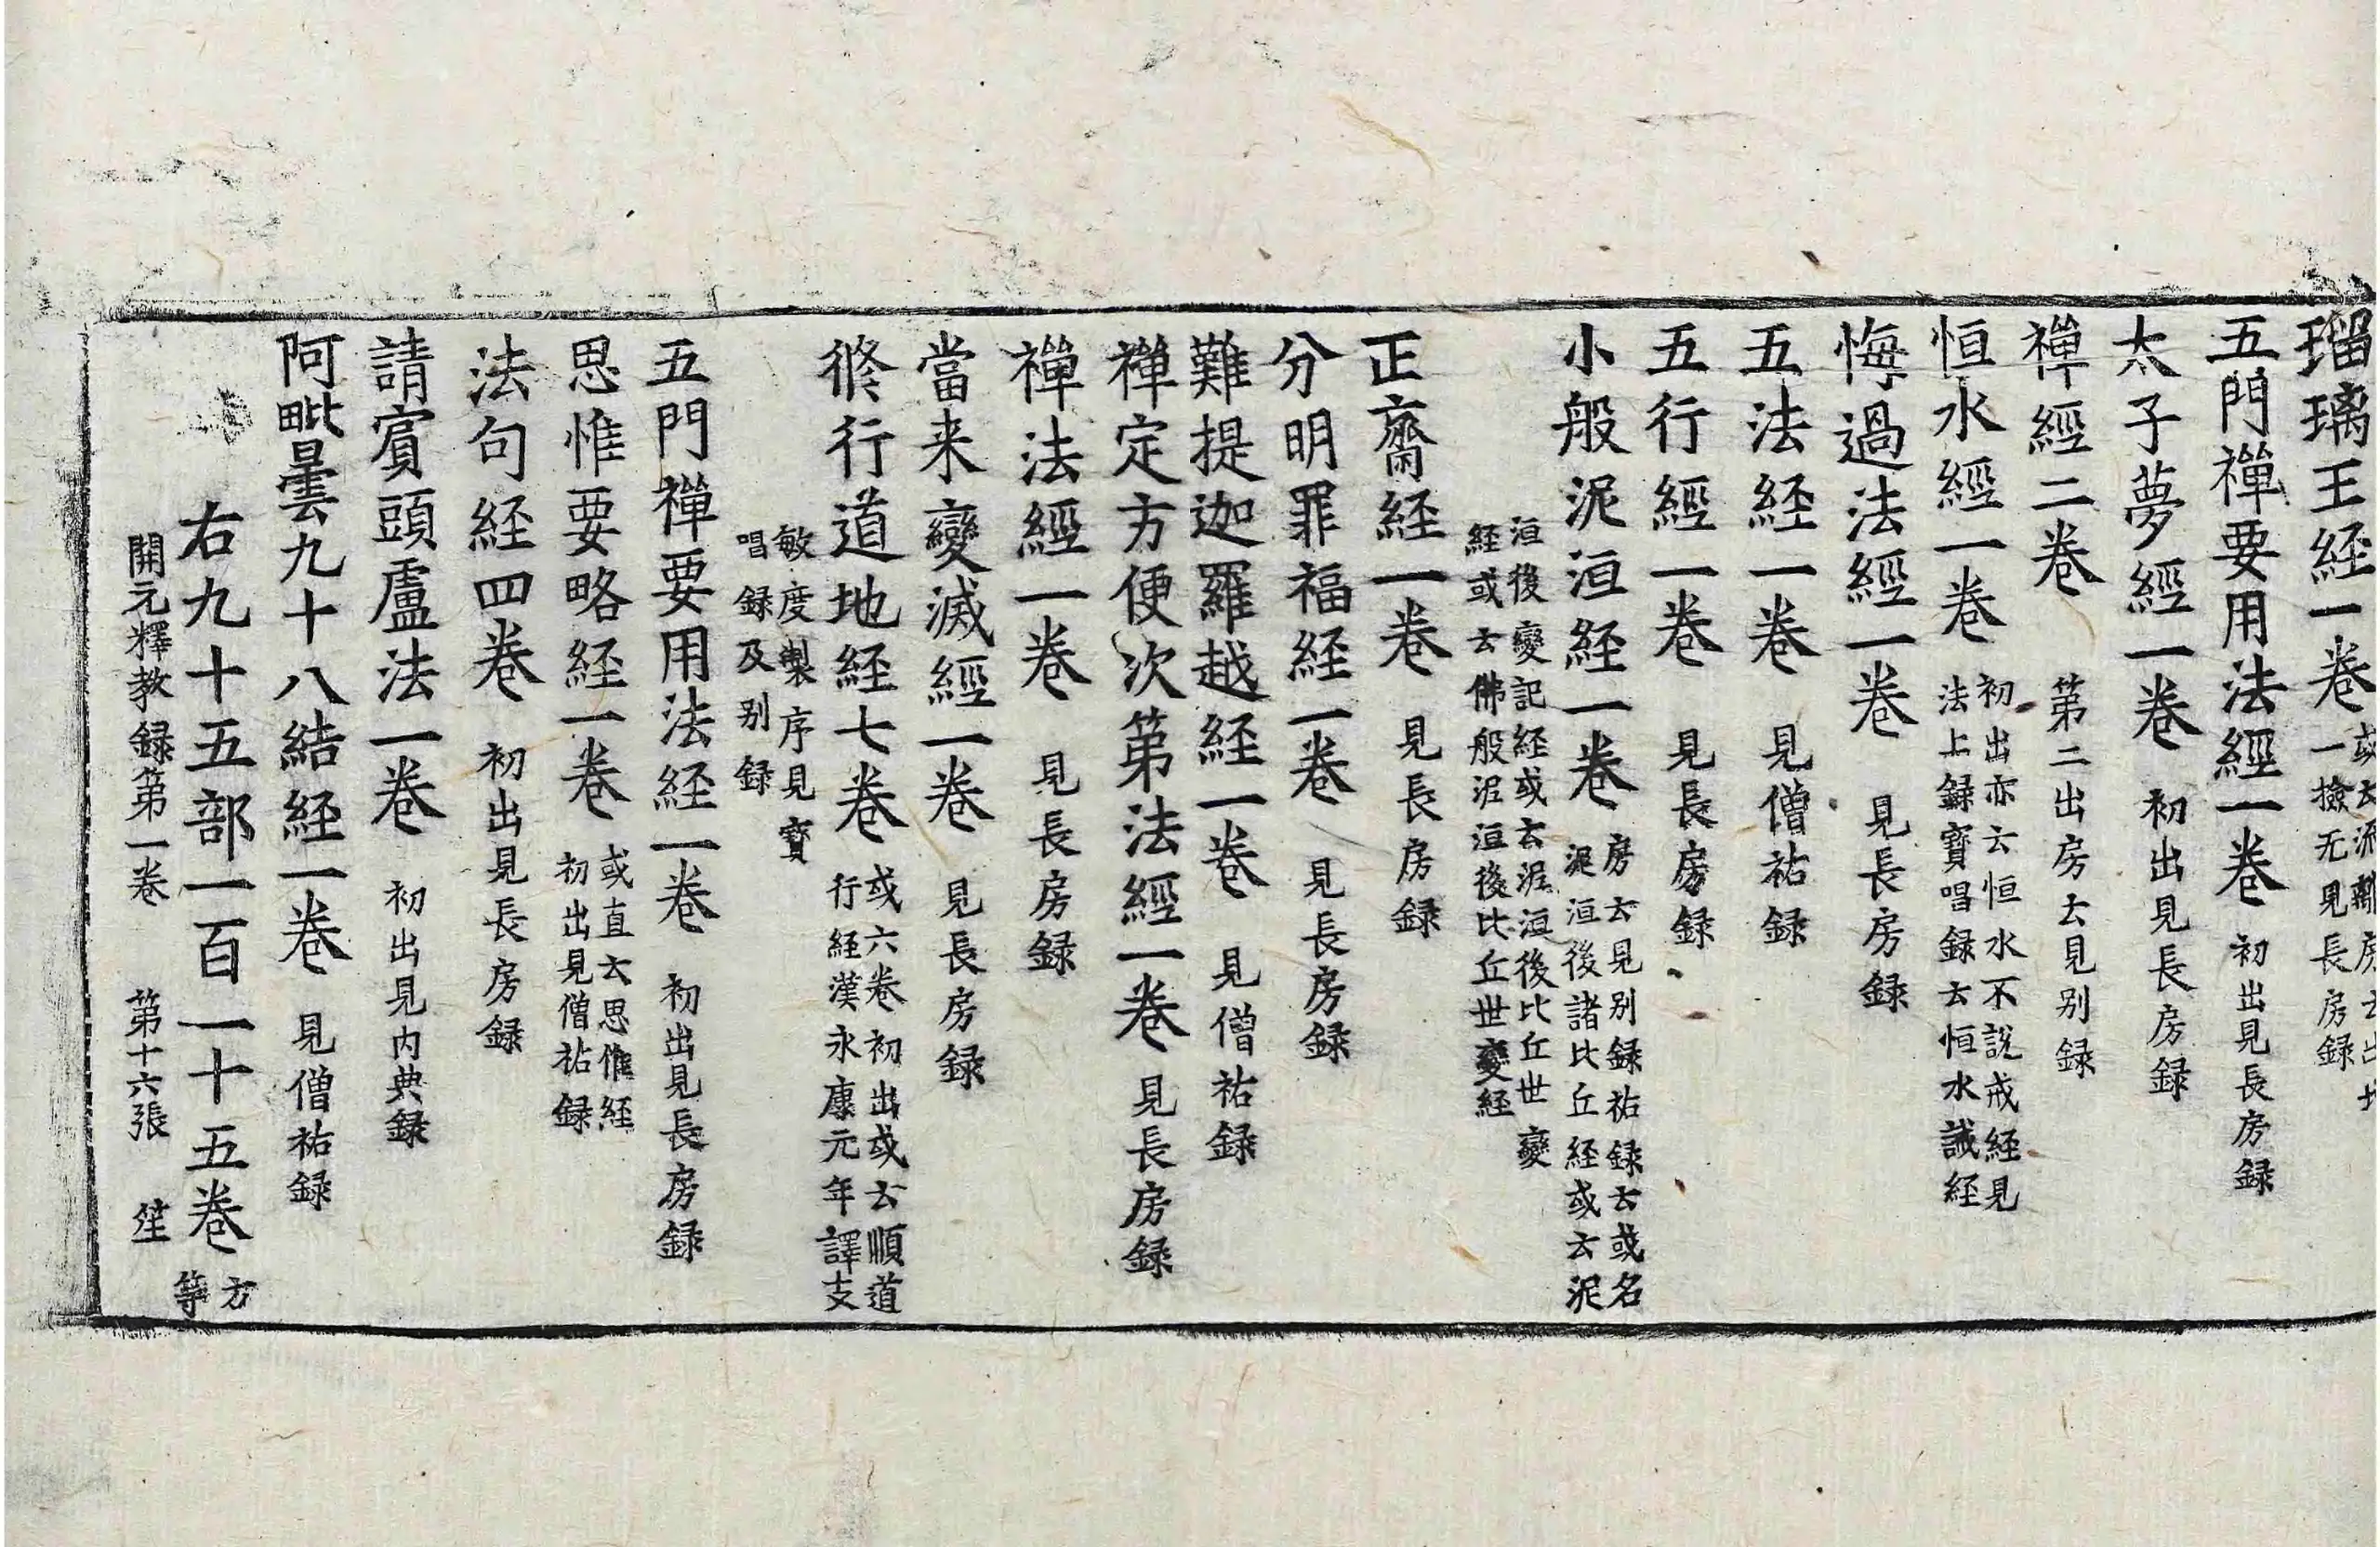 瑠璃王経一卷 一撿无見長房録
五門禪要用法經一卷 初出見長房録
太子夢經一卷 初出見長房録
禪經二卷 第二出房云見别録
恒水經一卷 初出亦云恒水不説戒経見
法上録寶唱録云恒水誡経
悔過法經一卷 見長房録
五法経一卷 見僧祐録
五行經一卷 見長房録
小般泥洹経一卷 房云見别録祐録云或名
泥洹後諸比丘経或云泥
洹後變記経或云泥洹後比丘世變
経或云佛般泥洹後比丘世變経
正齋経一卷 見長房録
分明罪福経一卷 見長房録
難提迦羅越経一卷 見僧祐録
禪定方便次第法經一卷 見長房録
禪法經一卷 見長房録
當来變滅經一卷 見長房録
脩行道地経七卷 或六卷初出或云順道
行経漢永康元年譯支
敏度製序見寶
唱録及别録
五門禪要用法経一卷 初出見長房録
思惟要略経一卷 或直云思惟経
初出見僧祐録
法句経四卷 初出見長房録
請賓頭盧法一卷 初出見内典録
阿毗曇九十八結経一卷 見僧祐録
右九十五部一百一十五卷 方
等
開元釋教録第一卷 第十六張 笙